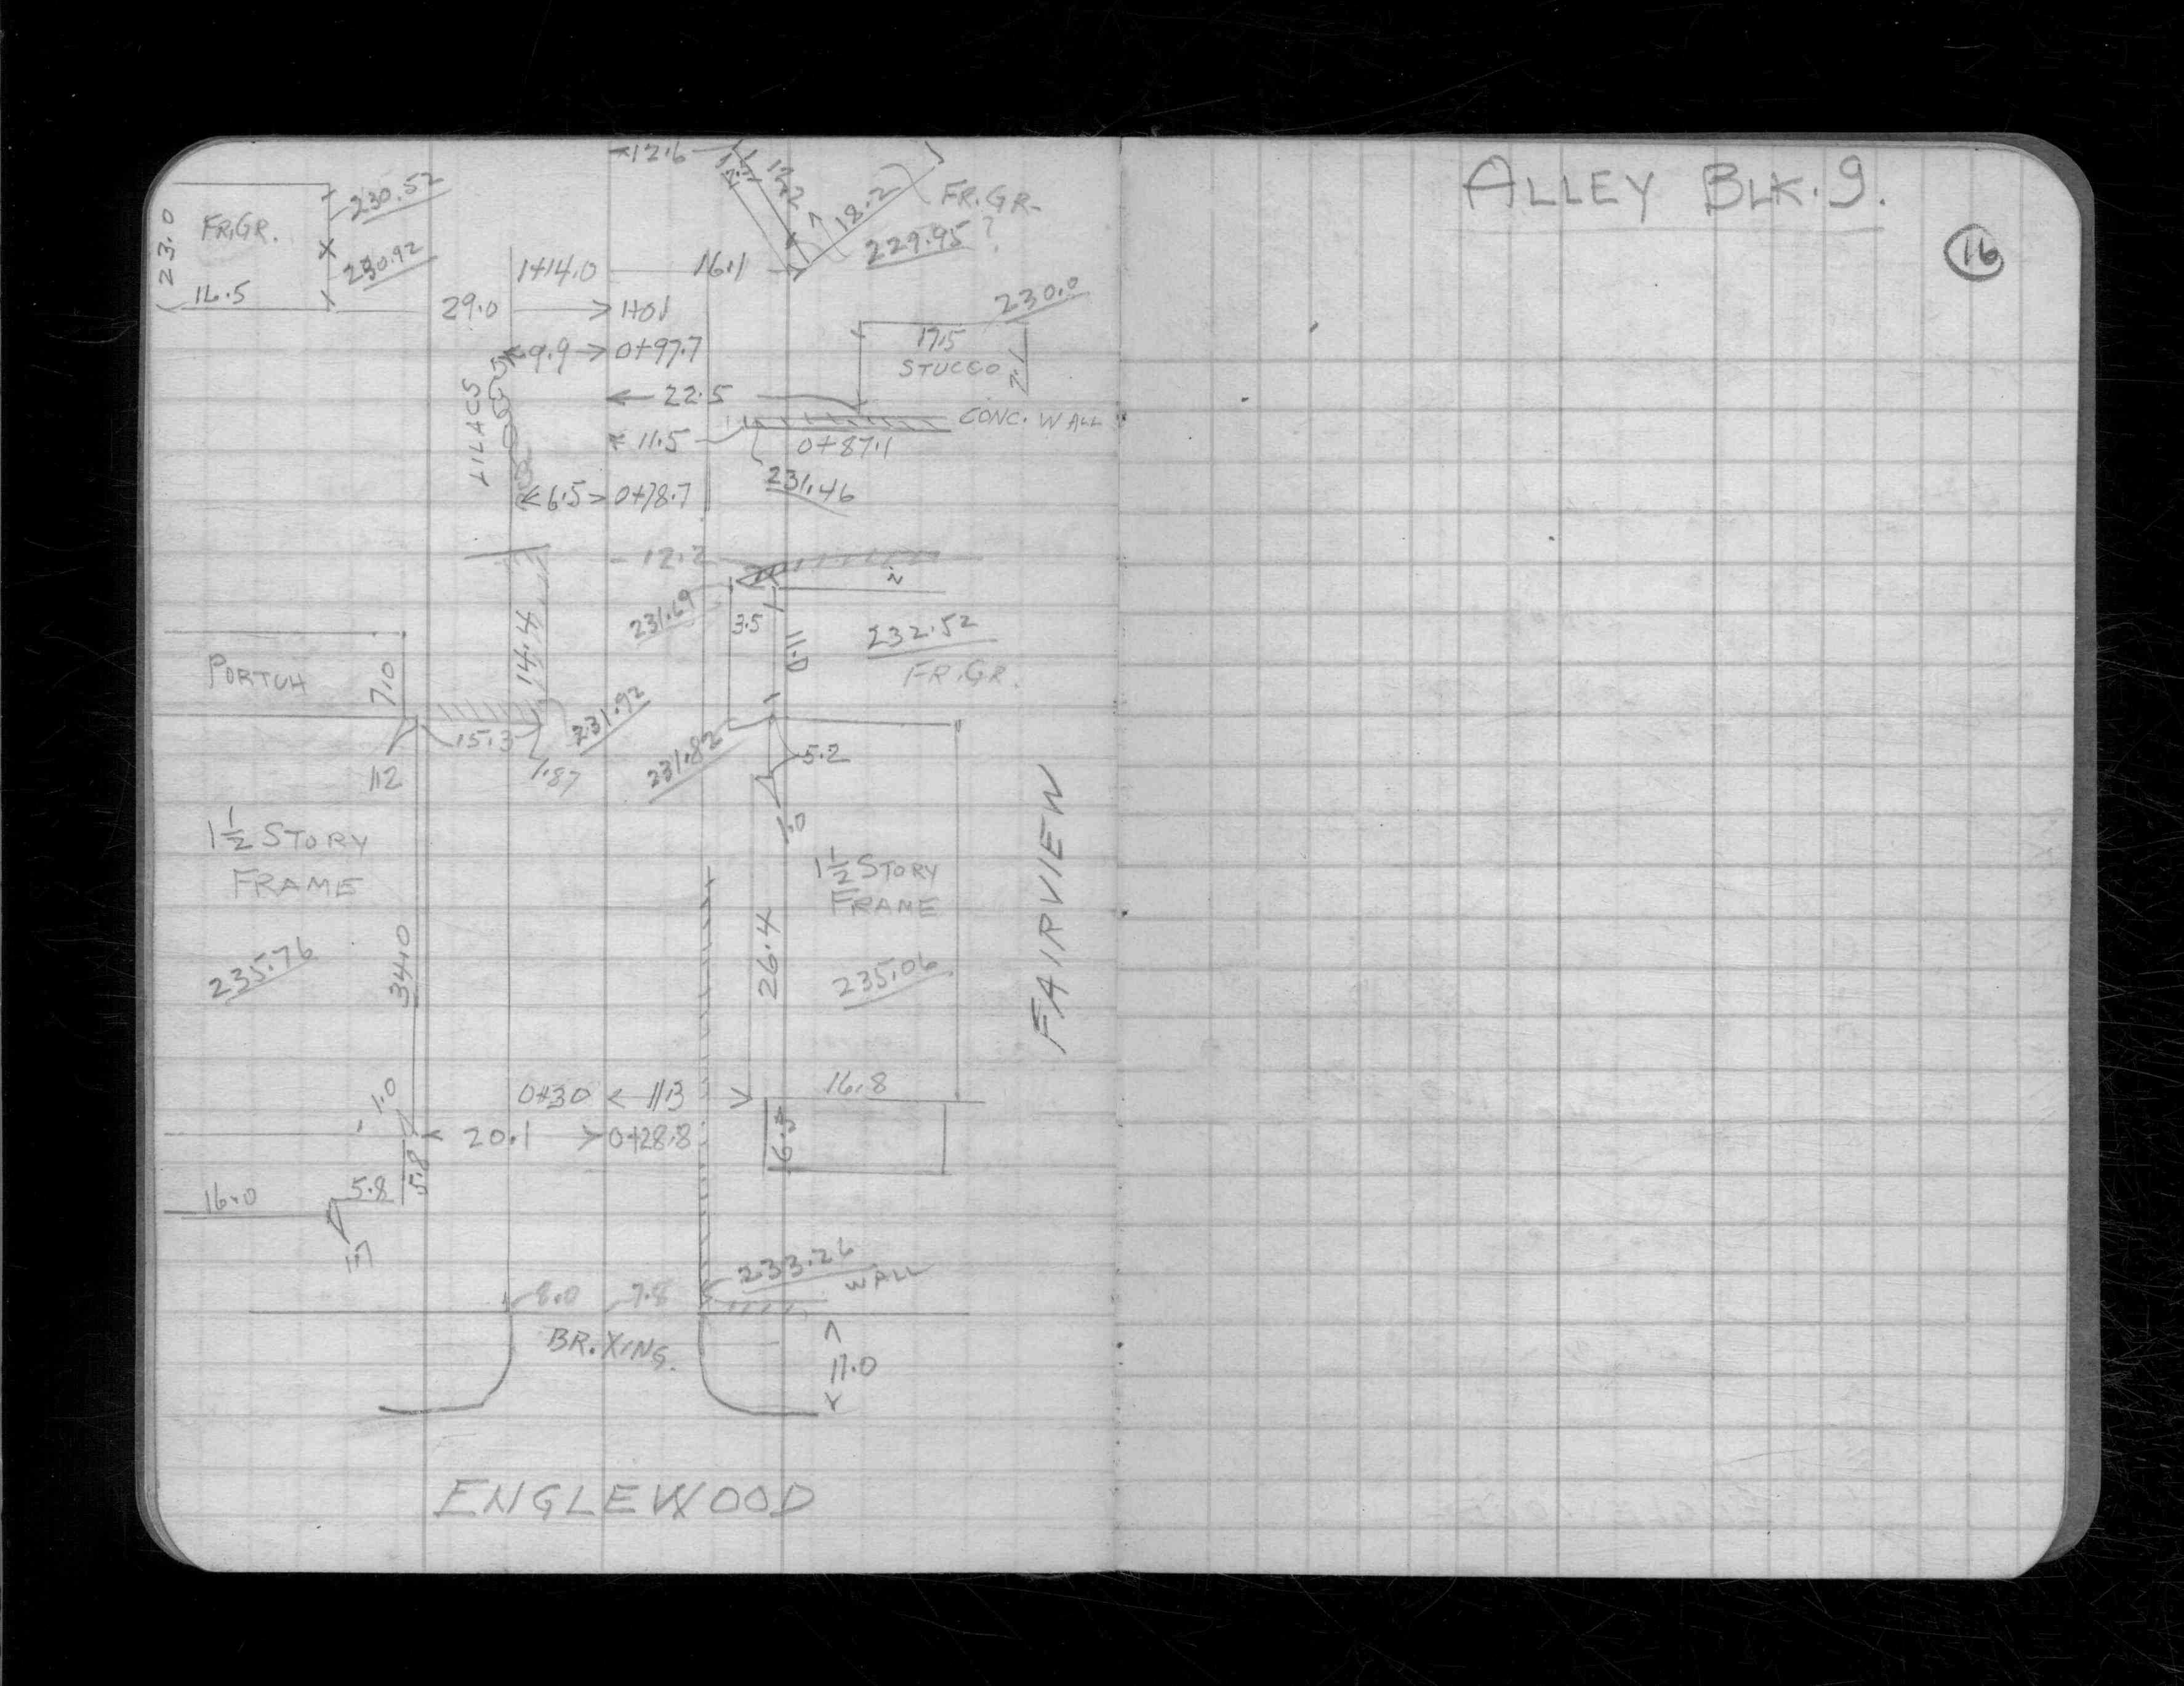 12.6
12.2
18.2
FR.GR.
229.95?
230.52
FR.GR.
23.0
230.92
16.5
1+14.0
16.1
29.0
1+01
230.0
9.9
0+97.7
17.5
STUCCO
LILACS
22.5
CONC. WALL
11.5
0+87.1
231.46
6.5
0+78.7
12.2
231.69
3.5
11.0
232.52
FR.GR.
14.4
PORTCH
7.0
15.3
231.92
231.82
1.2
1.87
5.2
1.0
1½ STORY
FRAME
1½ STORY
FRAME
FAIRVIEW
235.76
34.0
26.4
235.06
1.0
0+30
11.3
16.8
20.1
0+28.8
6.5
5.8
5.8
16.0
1.7
233.26
WALL
8.0
7.8
BR. XING.
11.0
ENGLEWOOD
ALLEY BLK. 9.
16